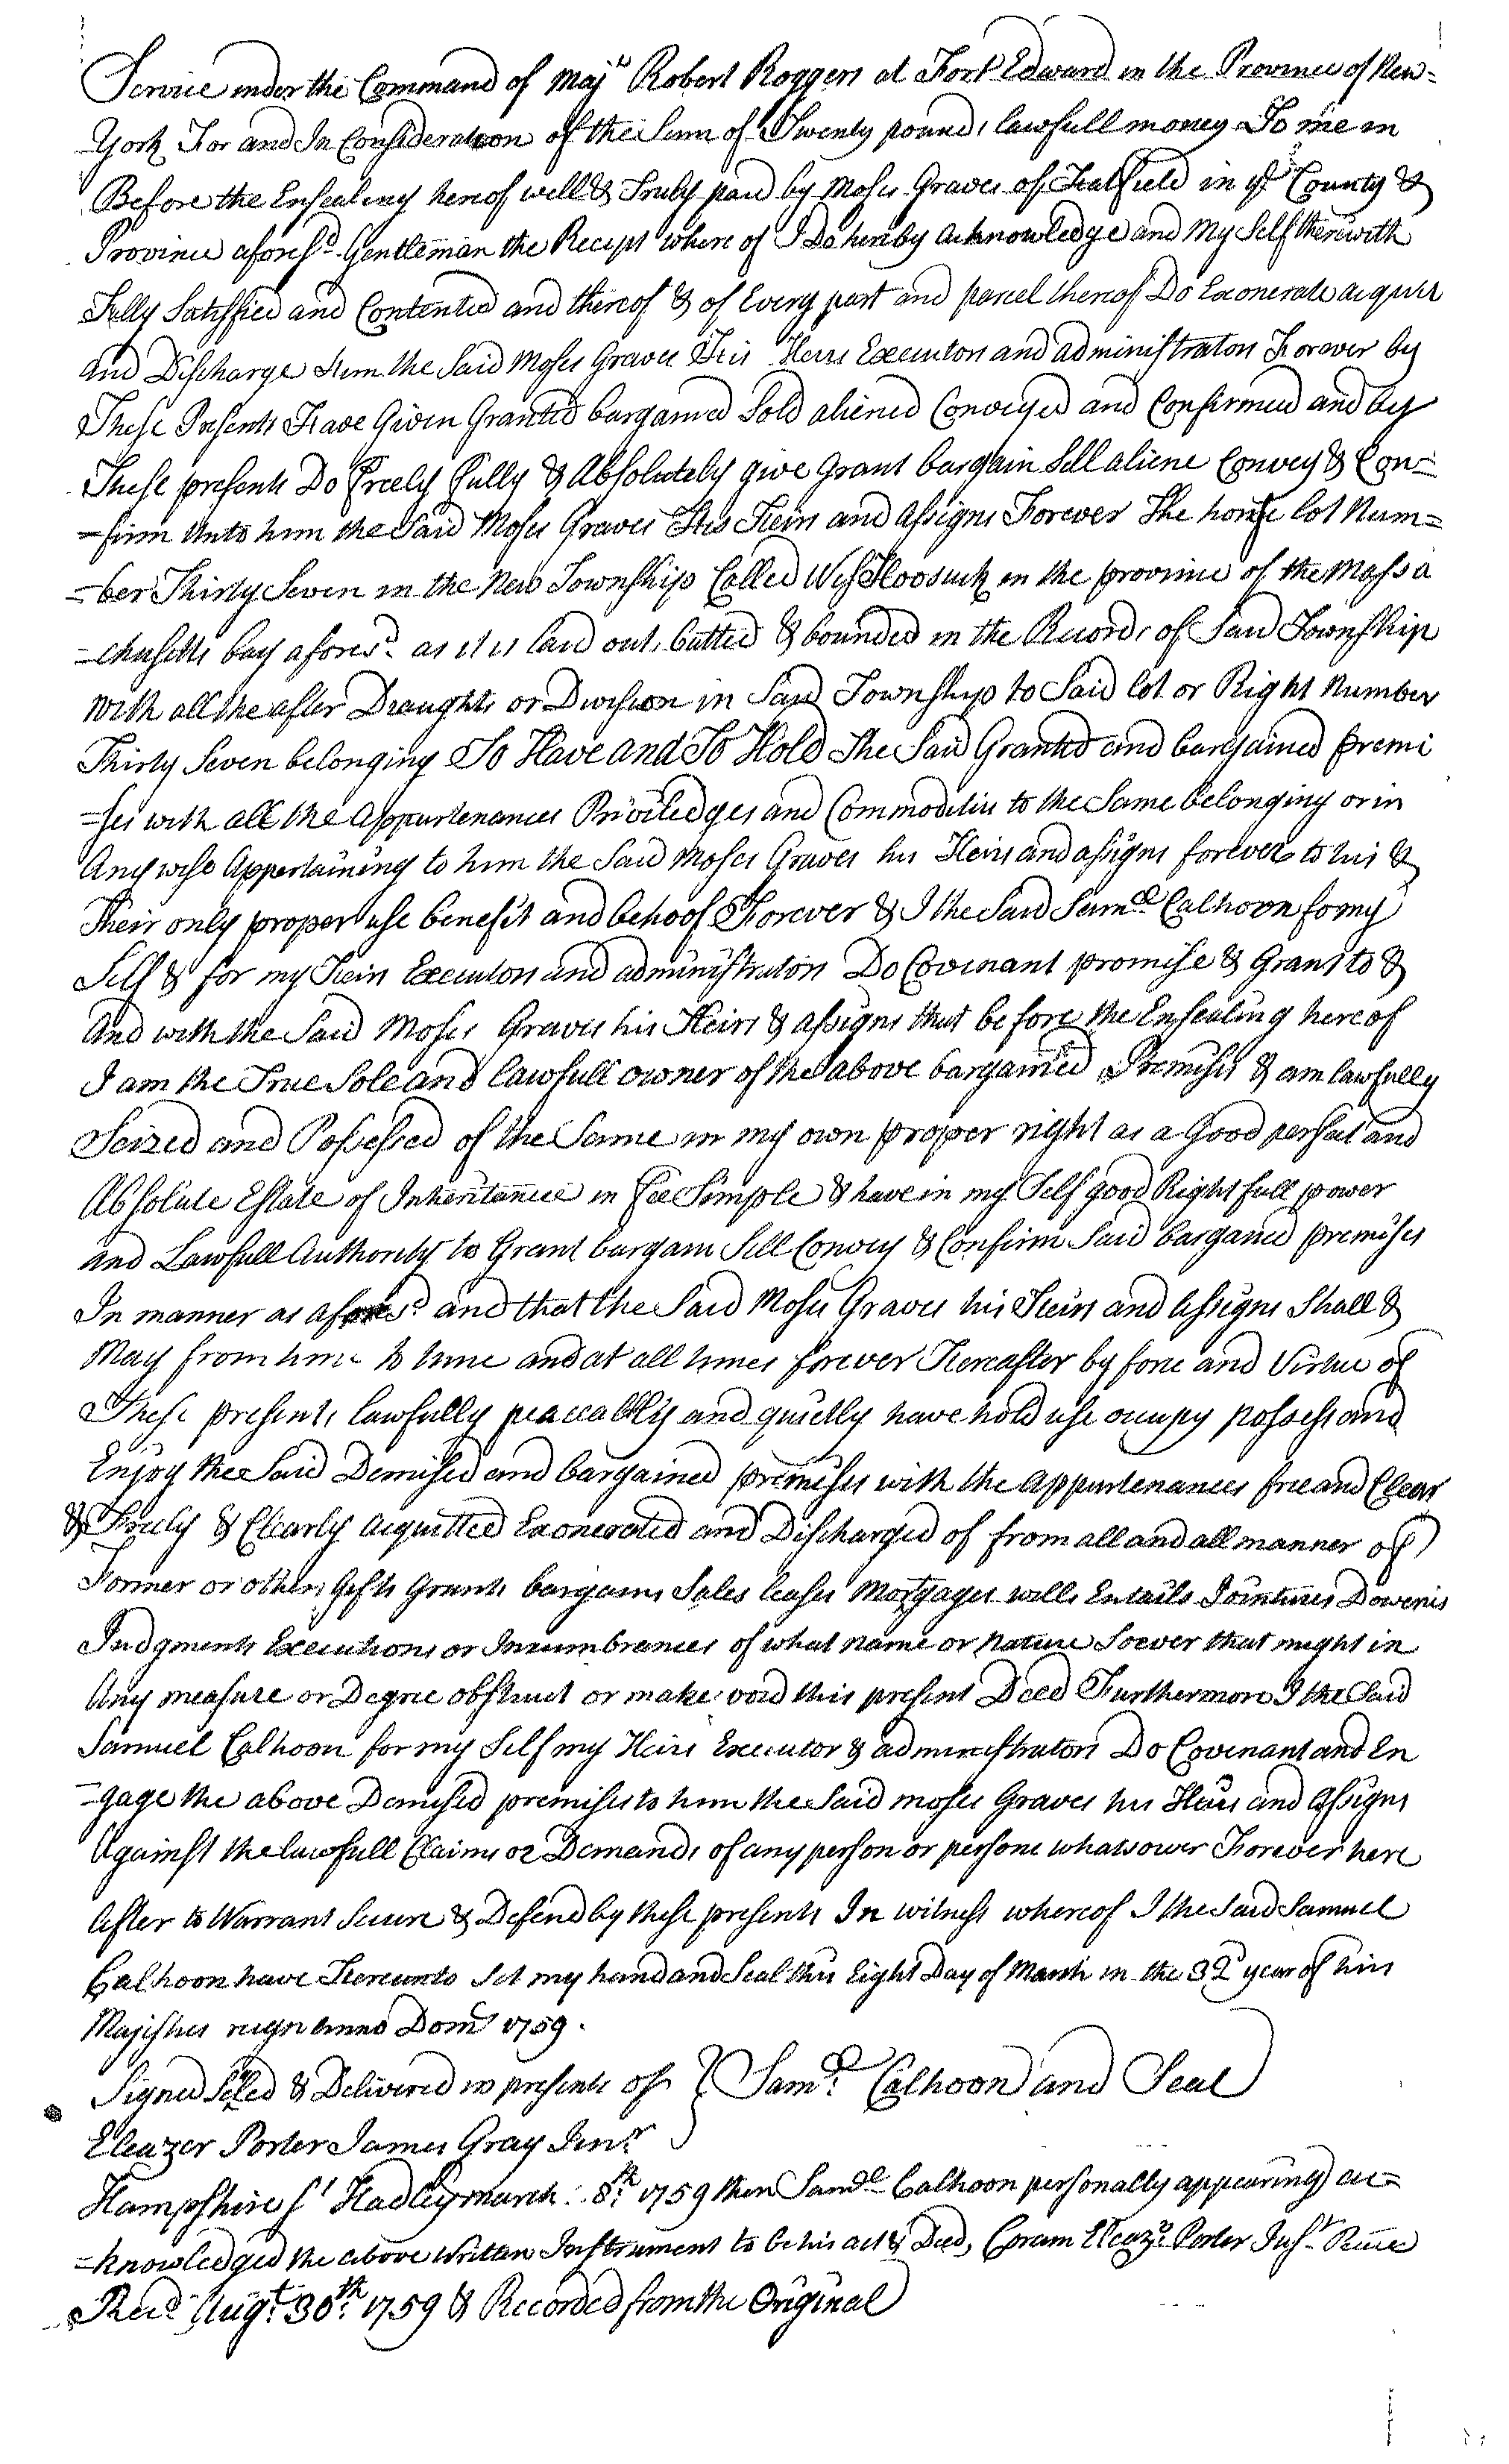 Service under the Command of Majr Robert Roggers at Fort Edward in the Province of New=
York For and In Consideration of the Sum of Twenty pounds lawfull money To me in
Before the Ensealing hereof well & Truly paid by Moses Graves of Hatfield in ye County &
Province aforesd Gentleman the Recept where of I Do hereby acknowledge and my Self therewith
Fully Satisfied and Contented and thereof & of Every part and parcel thereof Do Exonerate acquitt
And Discharge him the Said Moses Graves His Heirs Executors and administrators Forever by
These Presents Have Given Granted bargained Sold aliened Conveyed and Confirmed and by
These presents Do Freely Fully & Absolutely give Grant bargain Sell aliene Convey & Con=
=firm Unto him the Said Moses Graves His Heirs and Assigns Forever The house lot Num=
=ber Thirty Seven in the New Township Called West Hoosuck in the province of the Massa
=chusetts bay aforesd as it is laid out, butted & bounded in the Records of Said Township
with all the after Draughts or Division in Said Township to Said lot or Right Number
Thirty Seven belonging To Have and To Hold The Said Granted and bargained premi
=ses with all the Appurtenances Priviledges and Commodities to the Same belonging or in
Any wise Appertaining to him the Said Moses Graves his Heirs and assigns forever to his &
Their only proper use benefit and behoof Forever & I the Said Samll Calhoon for my
Self & for my Heirs Executors and administrators Do Covinant promise & Grant to &
And with the Said Moses Graves his Heirs & assigns that before the Ensealing hereof
I am the True Sole and lawfull owner of the above bargained Premises & am lawfully
Seized and Possessed of the Same in my own proper right as a Good perfect and
Absolute Estate of Inheritance in Fee Simple & have in my Self good Right full power
and Lawfull Authority to Grant bargain Sell Convey & Confirm Said bargained premises
In manner as aforesd and that the Said Moses Graves his Heirs and Assigns Shall &
May from time to time and at all times forever Hereafter by force and Virtue of
These presents lawfully peaceably and quietly have hold use occupy possess and
Enjoy the Said Demised and bargained premises with the appurtenances free and Clear
& Truly & Clearly acquitted Exonerated and Discharged of from all and all manner of
Former or other Gifts Grants bargains Sales leases Mortgages wills Entails Jointures Doweries
Judgments Executions or Incumbrances of what name or nature Soever that might in
Any measure or Degree obstruct or make void this present Deed Furthermore I the Said
Samuel Calhoon for my Self my Heirs Executor & administrators Do Covenant and En
=gage the above Demised premises to him the Said Moses Graves his Heirs and Assigns
Against the lawfull Claims or Demands of any person or persons whatsoever Forever here
After to Warrant Secure & Defend by these presents In witness whereof I the Said Samuel
Calhoon have Hereunto Set my hand and Seal this Eight Day of March in the 32d year of his
Majesties reign Anno Domi 1759.
Signed Seled & Delivered in presents of } Samll Calhoon and Seal
Eleazer Porter James Gray Junr
Hampshire Ss Hadley march 8th 1759 then Samll Calhoon personally appearing ac=
=knowledged the above Written Instrument to be his act & Deed, Coram Eleazr Porter Just Peace
Recd Augt 30th 1759 & Recorded from the Original